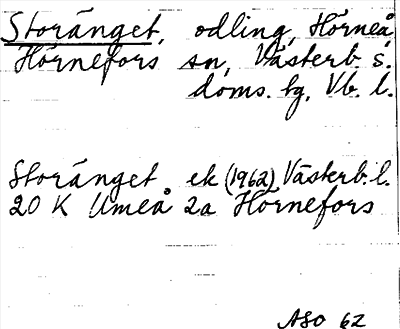 Storänget, odling, Hörneå,
Hörnefors sn, Västerb. s.
doms. hg, Vb. l.
Storänget ek (1962) Västerb. l.
20 K Umeå 2a Hörnefors
ASO 62